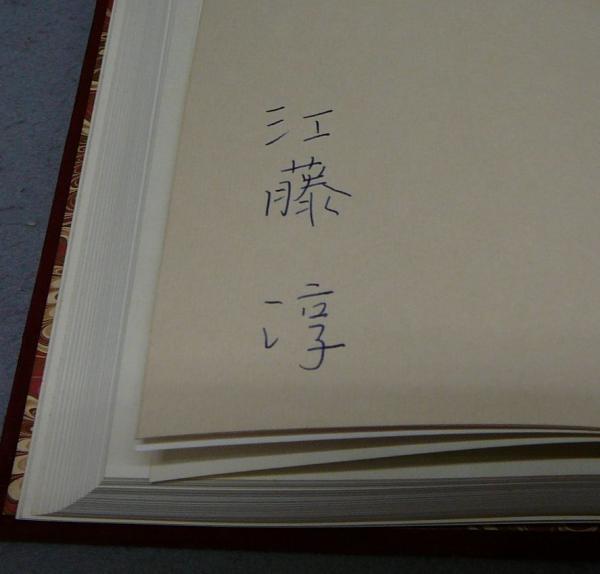 江藤 淳